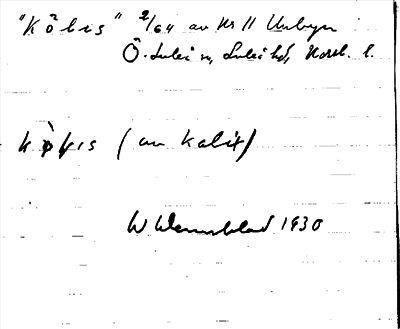 "Köbis" 2/64 av Nr 11 Unbyn
Ö. Luleå sn, Luleå hd, Norrb. l.
köpis (av Kalix)
W Wennblad 1930